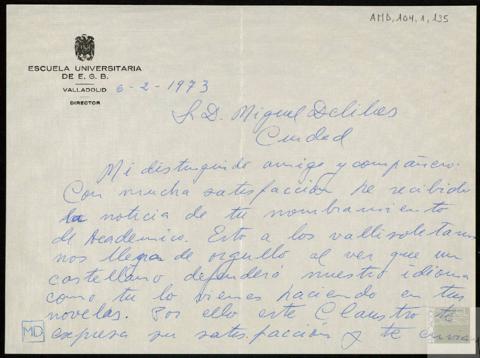 AMD, 104, 1, 135
ESCUELA UNIVERSITARIA
DE E. G. B.
VALLADOLID
DIRECTOR
6-2-1973
S. D. Miguel Delibes
Ciudad
Mi distinguido amigo y compañero:
Con mucha satisfacción he recibido
la noticia de tu nombramiento
de Académico. Esto a los vallisoletanos
nos llena de orgullo al ver que un
castellano defenderá nuestro idioma
como tu lo vienes haciendo en tus
novelas. Por ello este Claustro te
expresa su satisfacción y te
MD